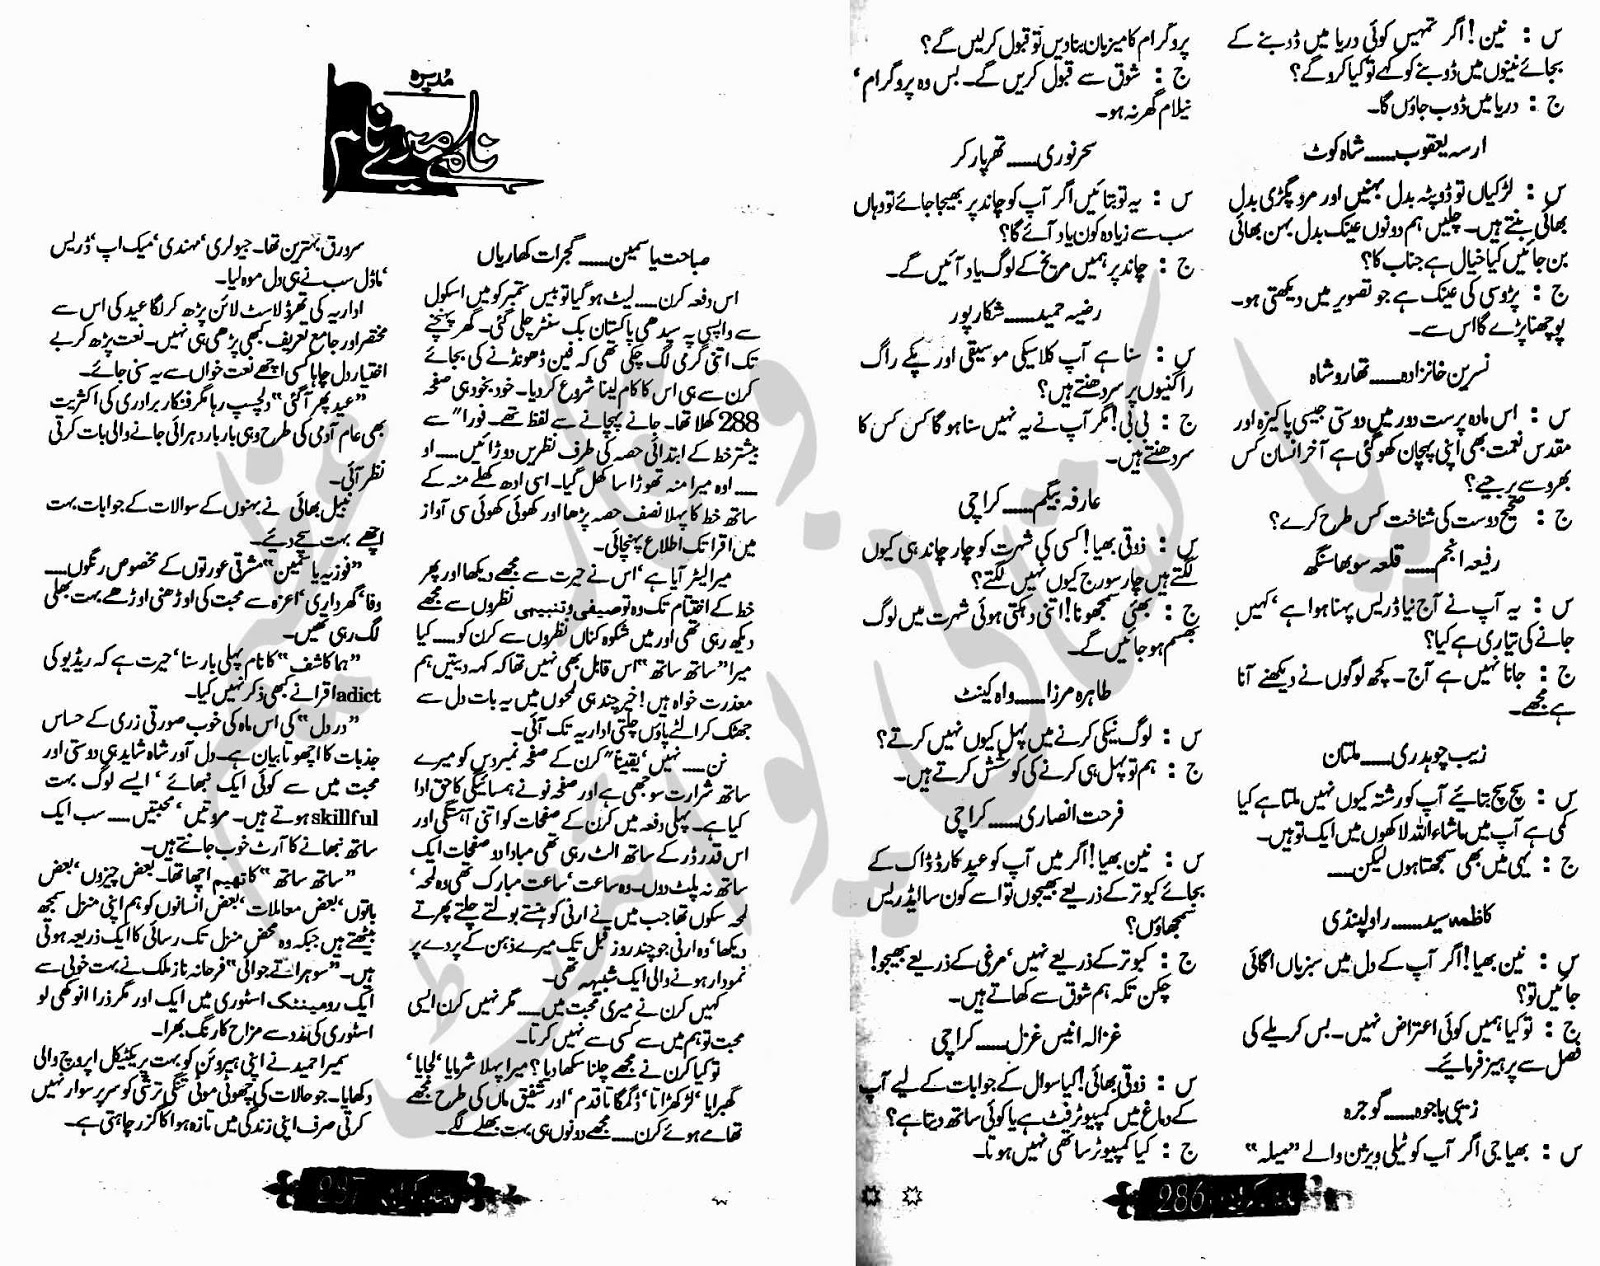 س : نین! اگر تمہیں کوئی دریا میں ڈوبنے کے
بجائے نینوں میں ڈوبنے کو کہے تو کیا کرو گے؟
ج : دریا میں ڈوب جاؤں گا۔
ارسہ یعقوب۔۔۔۔۔ شاہ کوٹ
س : لڑکیاں تو ڈوپٹہ بدل بہنیں اور مرد پگڑی بدل
بھائی بنتے ہیں۔ چلیں ہم دونوں عینک بدل بہن بھائی
بن جائیں کیا خیال ہے جناب کا؟
ج : پڑوسی کی عینک ہے جو تصویر میں دیکھتی ہو۔
پوچھنا پڑے گا اس سے۔
نسرین خانزادہ۔۔۔۔۔ ٹھارو شاہ
س : اس مادہ پرست دور میں دوستی جیسی پاکیزہ اور
مقدس نعمت بھی اپنی پہچان کھو گئی ہے آخر انسان کس
بھروسے پر جیے؟
ج : صحیح دوست کی شناخت کس طرح کرے؟
رفیعہ انجم۔۔۔۔۔ قلعہ سوبھا سنگھ
س : یہ آپ نے آج نیا ڈریس پہنا ہوا ہے، کہیں
جانے کی تیاری ہے کیا؟
ج : جانا نہیں ہے آج۔ کچھ لوگوں نے دیکھنے آنا
ہے مجھے۔
زیب چوہدری۔۔۔۔۔ ملتان
س : سچ سچ بتائیے آپ کو رشتہ کیوں نہیں ملتا ہے کیا
کمی ہے آپ میں ماشاء اللہ لاکھوں میں ایک تو ہیں۔
ج : یہی میں بھی سمجھتا ہوں لیکن۔۔۔۔
کاظمہ سید۔۔۔۔۔ راولپنڈی
س : نین بھیا! اگر آپ کے دل میں سبزیاں اگائی
جائیں تو؟
ج : تو کیا ہمیں کوئی اعتراض نہیں۔ بس کریلے کی
فصل سے پرہیز فرمائیے۔
زیبی باجوہ۔۔۔۔۔ گوجرہ
س : بھیا جی اگر آپ کو ٹیلی ویژن والے "میلہ"
پروگرام کا میزبان بنادیں تو قبول کرلیں گے؟
ج : شوق سے قبول کریں گے۔ بس وہ پروگرام،
نیلام گھر نہ ہو۔
سحر نوری۔۔۔۔۔ تھرپارکر
س : یہ تو بتائیں اگر آپ کو چاند پر بھیجا جائے تو وہاں
سب سے زیادہ کون یاد آئے گا؟
ج : چاند پر ہمیں مریخ کے لوگ یاد آئیں گے۔
رضیہ حمید۔۔۔۔۔ شکارپور
س : سنا ہے آپ کلاسیکی موسیقی اور پکے راگ
راگنیوں پر سر دھنتے ہیں؟
ج : بی بی! مگر آپ نے یہ نہیں سنا ہو گا کس کس کا
سر دھنتے ہیں۔
عارفہ بیگم۔۔۔۔۔ کراچی
س : ذوقی بھیا! کسی کی شہرت کو چار چاند ہی کیوں
لگتے ہیں چار سورج کیوں نہیں لگتے؟
ج : بھئی سمجھونا! اتنی دہکتی ہوئی شہرت میں لوگ
بھسم ہو جائیں گے۔
طاہرہ مرزا۔۔۔۔۔ واہ کینٹ
س : لوگ نیکی کرنے میں پہل کیوں نہیں کرتے؟
ج : ہم تو پہل ہی کرنے کی کوشش کرتے ہیں۔
فرحت انصاری۔۔۔۔۔ کراچی
س : نین بھیا! اگر میں آپ کو عید کارڈ ڈاک کے
بجائے کبوتر کے ذریعے بھیجوں تو اسے کون سا ایڈریس
سمجھاؤں؟
ج : کبوتر کے ذریعے نہیں، مرغی کے ذریعے بھیجو!
چکن تکہ ہم شوق سے کھاتے ہیں۔
غزالہ انیس غزل۔۔۔۔۔ کراچی
س : ذوقی بھائی! کیا سوال کے جوابات کے لیے آپ
کے دماغ میں کمپیوٹر فٹ ہے یا کوئی ساتھ دیتا ہے؟
ج : کیا کمپیوٹر ساتھی نہیں ہوتا۔
286
مدیرہ
نامے میرے نام
صباحت یاسمین۔۔۔۔۔ گجرات کھاریاں
اس دفعہ کرن۔۔۔۔ لیٹ ہو گیا تو بیس ستمبر کو میں اسکول
سے واپسی پہ سیدھی پاکستان بک سنٹر چلی گئی۔ گھر پہنچنے
تک اتنی گرمی لگ چکی تھی کہ فین ڈھونڈنے کی بجائے
کرن سے ہی اس کا کام لینا شروع کردیا۔ خود بخود ہی صفحہ
288 کھلا تھا۔ جانے پہچانے سے لفظ تھے۔ فورا" سے
بیشتر خط کے ابتدائی حصہ کی طرف نظریں دوڑائیں۔۔۔۔ او
۔۔۔۔ اوہ میرا منہ تھوڑا سا کھل گیا۔ اسی ادھ کھلے منہ کے
ساتھ خط کا پہلا نصف حصہ پڑھا اور کھوئی کھوئی سی آواز
میں اقرا تک اطلاع پہنچائی۔
میرا لیٹر آیا ہے، اس نے حیرت سے مجھے دیکھا اور پھر
خط کے اختتام تک وہ توصیفی و تنبیہی نظروں سے مجھے
دیکھ رہی تھی اور میں شکوہ کناں نظروں سے کرن کو۔۔۔۔ کیا
میرا "ساتھ ساتھ" اس قابل بھی نہیں تھا کہ کہہ دیتیں ہم
معذرت خواہ ہیں! خیر چند ہی لمحوں میں یہ بات دل سے
جھٹک کر الٹے پاؤں چلتی اداریہ تک آئی۔
نن۔۔۔۔ نہیں، یقینا" کرن کے صفحہ نمبر دس کو میرے
ساتھ شرارت سوجھی ہے اور صفحہ نو نے ہمسائیگی کا حق ادا
کیا ہے۔ پہلی دفعہ میں کرن کے صفحات کو اتنی آہستگی اور
اس قدر ڈر کے ساتھ الٹ رہی تھی مبادا دو صفحات ایک
ساتھ نہ پلٹ دوں۔ وہ ساعت، ساعت مبارک تھی وہ لمحہ،
لمحہ سکوں تھا جب میں نے ارنی کو ہنستے بولتے چلتے پھرتے
دیکھا، وہ ارنی جو چند روز قبل تک میرے ذہن کے پردے پر
نمودار ہونے والی ایک شبیہہ تھی۔
کہیں کرن نے میری محبت میں۔۔۔۔ مگر نہیں کرن ایسی
محبت تو ہم میں سے کسی سے نہیں کرتا۔
تو کیا کرن نے مجھے چلنا سکھا دیا؟ میرا پہلا شرمایا، لجایا،
گھبرایا، لڑکھڑاتا، ڈگمگاتا قدم، اور شفیق ماں کی طرح مجھے
تھامے ہوئے کرن۔۔۔۔ مجھے دونوں ہی بہت بھلے لگے۔
سرورق بہترین تھا۔ جیولری، مہندی، میک اپ، ڈریس
، ماڈل سب نے ہی دل موہ لیا۔
اداریہ کی تھرڈ لاسٹ لائن پڑھ کر لگا عید کی اس سے
مختصر اور جامع تعریف کبھی پڑھی ہی نہیں۔ نعت پڑھ کر بے
اختیار دل چاہا کسی اچھے نعت خواں سے یہ سنی جائے۔
"عید پھر آگئی" دلچسپ رہا مگر فنکار برادری کی اکثریت
بھی عام آدمی کی طرح وہی بار بار دہرائی جانے والی بات کرتی
نظر آئی۔
نبیل بھائی نے بہنوں کے سوالات کے جوابات بہت
اچھے بہت سچے دیے۔
"فوزیہ یاسمین" مشرقی عورتوں کے مخصوص رنگوں۔۔۔۔
وفا، گھرداری، اعزہ سے محبت کی اوڑھنی اوڑھے بہت بھلی
لگ رہی تھیں۔
"ہما کاشف" کا نام پہلی بار سنا، حیرت ہے کہ ریڈیو کی
adict اقرا نے کبھی ذکر نہیں کیا۔
"در دل" کی اس ماہ کی خوب صورتی زری کے حساس
جذبات کا اچھوتا بیان ہے۔ دل آور شاہ شاید ہی دوستی اور
محبت میں سے کوئی ایک نبھائے، ایسے لوگ بہت
skillful ہوتے ہیں۔ مروتیں، محبتیں۔۔۔۔ سب ایک
ساتھ نبھانے کا آرٹ خوب جانتے ہیں۔
"ساتھ ساتھ" کا تھیم اچھا تھا۔ بعض چیزوں، بعض
باتوں، بعض معاملات، بعض انسانوں کو ہم اپنی منزل سمجھ
بیٹھتے ہیں جبکہ وہ محض منزل تک رسائی کا ایک ذریعہ ہوتی
ہیں۔ "سوہرا تے جوائی" فرحانہ ناز ملک نے بہت خوبی سے
ایک رومینٹک اسٹوری میں ایک اور مگر ذرا انوکھی لو
اسٹوری کی مدد سے مزاح کا رنگ بھرا۔
سمیرا حمید نے اپنی ہیروئن کو بہت پریکٹیکل اپروچ والی
دکھایا۔ جو حالات کی چھوٹی موٹی تنگی ترشی کو سر پر سوار نہیں
کرتی صرف اپنی زندگی میں تازہ ہوا کا گزر چاہتی ہے۔
287